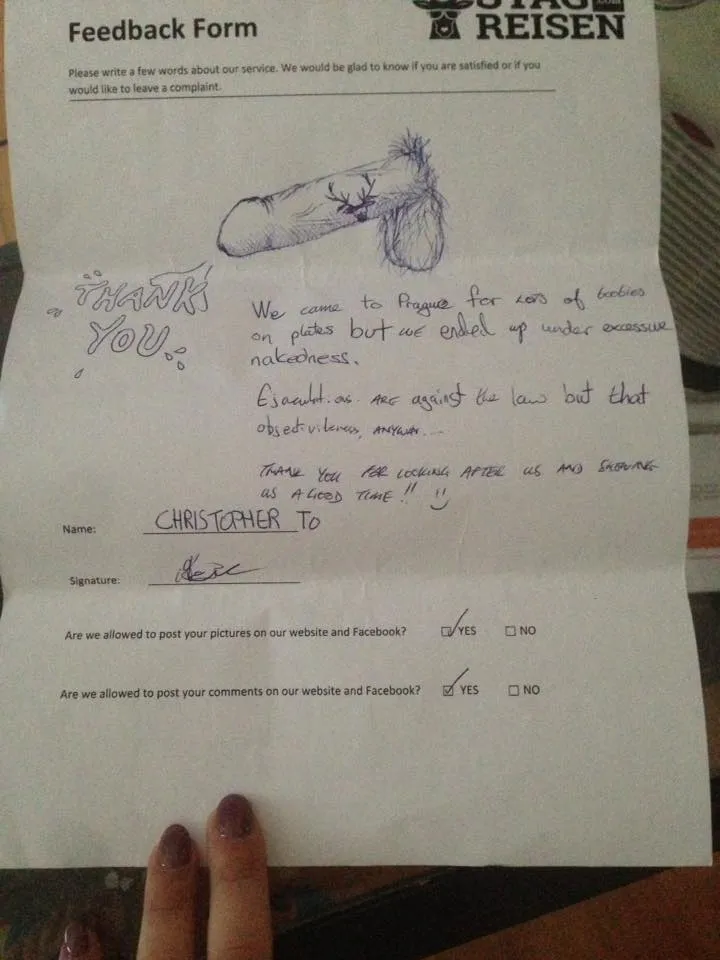 Feedback Form
STAG
.com
REISEN
Please write a few words about our service. We would be glad to know if you are satisfied or if you
would like to leave a complaint.
THANK
YOU
We came to Prague for LOTS of boobies
on plates but WE ended up under excessive
nakedness.
ARE against the law but that
ANYWAY...
THANK YOU FOR LOOKING AFTER US AND SHOWING
US A GOOD TIME!!
Name: CHRISTOPHER TO
Signature:
Are we allowed to post your pictures on our website and Facebook? YES NO
Are we allowed to post your comments on our website and Facebook? YES NO